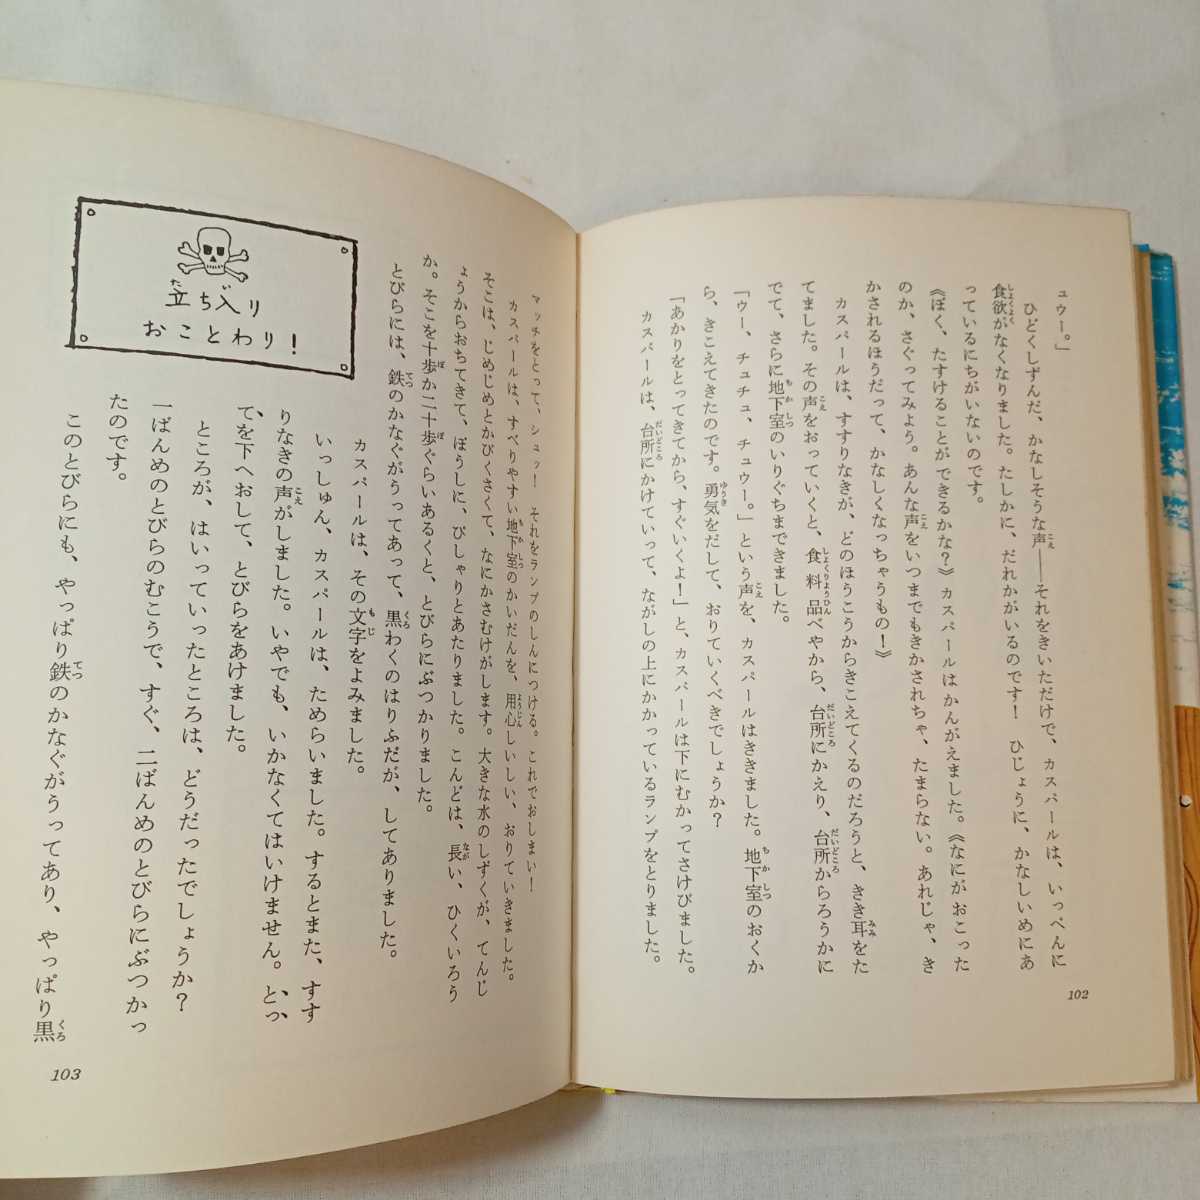 ュウー。」
ひどくしずんだ、かなしそうな声――それをきいただけで、カスパールは、いっぺんに
食欲がなくなりました。たしかに、だれかがいるのです！　ひじょうに、かなしいめにあ
っているにちがいないのです。
《ぼく、たすけることができるかな？》カスパールはかんがえました。《なにがおこった
のか、さぐってみよう。あんな声をいつまでもきかされちゃ、たまらない。あれじゃ、き
かされるほうだって、かなしくなっちゃうもの！》
カスパールは、すすりなきが、どのほうこうからきこえてくるのだろうと、きき耳をた
てました。その声をおっていくと、食料品べやから、台所にかえり、台所からろうかに
でて、さらに地下室のいりぐちまできました。
「ウー、チュチュ、チュウー。」という声を、カスパールはききました。地下室のおくか
ら、きこえてきたのです。勇気をだして、おりていくべきでしょうか？
「あかりをとってきてから、すぐいくよ！」と、カスパールは下にむかってさけびました。
カスパールは、台所にかけていって、ながしの上にかかっているランプをとりました。
102
マッチをとって、シュッ！　それをランプのしんにつける。これでおしまい！
カスパールは、すべりやすい地下室のかいだんを、用心しいしい、おりていきました。
そこは、じめじめとかびくさくて、なにかさむけがします。大きな水のしずくが、てんじ
ょうからおちてきて、ぼうしに、ぴしゃりとあたりました。こんどは、長い、ひくいろう
か。そこを十歩か二十歩ぐらいあるくと、とびらにぶつかりました。
とびらには、鉄のかなぐがうってあって、黒わくのはりふだが、してありました。
立ち入り
おことわり！
カスパールは、その文字をよみました。
いっしゅん、カスパールは、ためらいました。するとまた、すす
りなきの声がしました。いやでも、いかなくてはいけません。とっ
てを下へおして、とびらをあけました。
ところが、はいっていったところは、どうだったでしょうか？
一ばんめのとびらのむこうで、すぐ、二ばんめのとびらにぶつかっ
たのです。
このとびらにも、やっぱり鉄のかなぐがうってあり、やっぱり黒
103